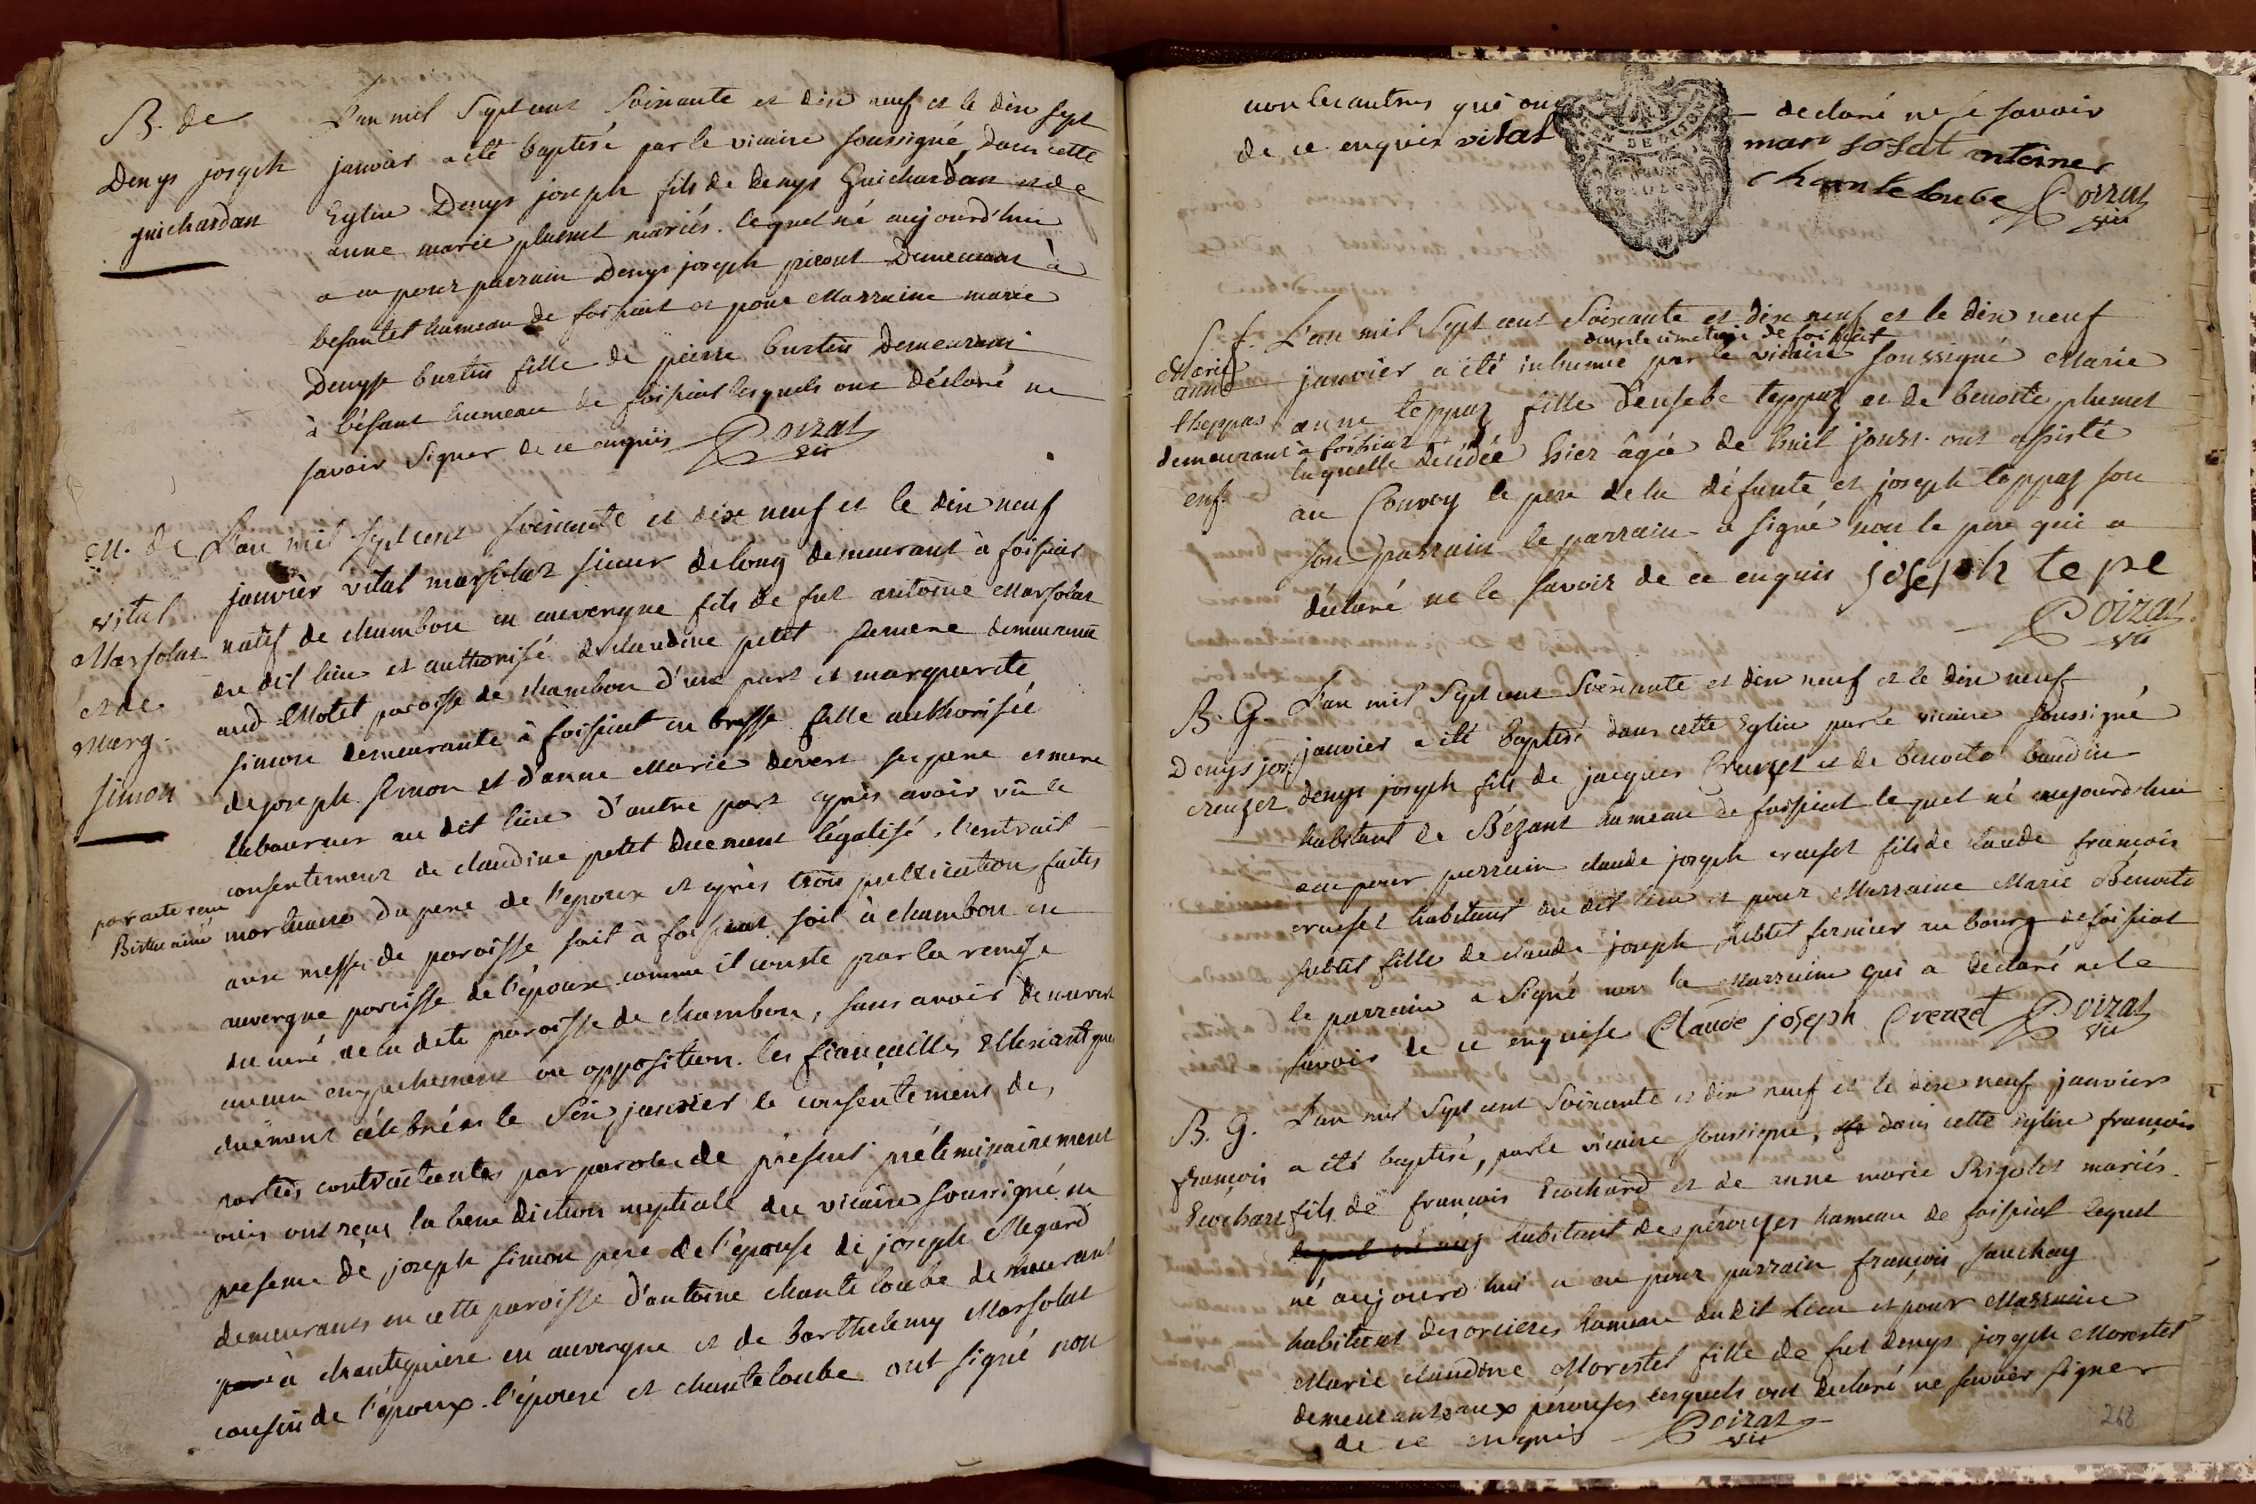 B. de
Denys joseph
guichardan
L'an mil sept cent soixante et dix neuf et le dix sept
janvier a été baptisé par le vicaire soussigné, dans cette
Eglise Denys joseph fils de denys Guichardan et de
anne marie plumet mariés. lequel né aujourd'hui
a eu pour parrain Denys joseph demeurant à
hameau de foissiat et pour Marraine marie
Denyse burtin fille de pierre burtin demeurant
à bésant hameau de foissiat lesquels ont déclaré ne
savoir signer de ce enquis Poizat
vic
M. de
vital
Marsolat
et de
Marg.
simon
L'an mil sept cent soixante et dix neuf et le dix neuf
janvier vital marsolat sieur de long demeurant à foissiat
natif de chambon en auvergne fils de feu antoine Marsolat
du dit lieu et authorisé de claudine petit sa mere demeurant
aud Motet paroisse de chambon d'une part et marguerite
simon demeurante à foissiat en bresse fille authorisée
de joseph simon et d'anne Marie devert ses pere et mere
laboureur au dit lieu d'autre part après avoir vû le
consentement de claudine petit duement légalisé, l'extrait
mortuaire du pere de l'epoux et après trois publications faites
aux messes de paroisse soit à foissiat soit à chambon en
auvergne paroisse de l'époux comme il conste par la remise
du curé de la dite paroisse de chambon, sans avoir decouvert
aucun empechement ou opposition. les fiançailles
duement célébrées le janvier le consentement des
parties contractantes par paroles de présent préliminairement
ouis ont reçu la benediction nuptiale du vicaire soussigné en
presence de joseph simon pere de l'épouse de joseph Megard
demeurants en cette paroisse d'antoine chanteloube demeurant
à chanteguiere en auvergne et de barthelemy Marsolat
cousin de l'époux. l'épouse et chanteloube ont signé non
non les autres qui ont déclaré ne le savoir
de ce enquis vital marsosat antoiner
chanteloube Poizat
vic
S. f.
Marie
anne
theppas
demeurant à foissiat
enf.
L'an mil sept cent soixante et dix neuf et le dix neuf
dans le cimetiere de foissiat
janvier a été inhumée par le vicaire soussigné Marie
anne teppaz fille d'eusebe teppaz et de benoite plumet
laquelle décédée hier âgée de huit jours. ont assisté
au Convoy le pere de la défunte et joseph teppaz son
son parrain le parrain a signé non le pere qui a
déclaré ne le savoir de ce enquis joseph tepe
Poizat
vic
B. G.
Denys jos
creuzet
L'an mil sept cent soixante et dix neuf et le dix neuf
janvier a été baptisé dans cette Eglise par le vicaire soussigné
denys joseph fils de jacques Creuzet et de benoite baudin
habitant de Bézant hameau de foissiat lequel né aujourd'hui
a eu pour parrain claude joseph creuset fils de claude françois
creuset habitant du dit lieu et pour Marraine Marie Benoite
fille de claude joseph fermier au bourg de foissiat
le parrain a signé non la Marraine qui a déclaré ne le
savoir de ce enquise Claude joseph Creuzet Poizat
vic
B. G.
françois
Ecochard
L'an mil sept cent soixante et dix neuf et le dix neuf janvier
a été baptisé, par le vicaire soussigné, dans cette eglise françois
fils de françois Ecochard et de anne marie Rigolet mariés
habitant des pérouses hameau de foissiat lequel
né aujourd hui a eu pour parrain françois sauchay
habitant des orcieres hameau du dit lieu et pour Marraine
Marie claudine Morestel fille de feu denys joseph Morestel
demeurants aux pérouses lesquels ont déclaré ne savoir signer
de ce enquis Poizat
vic
268